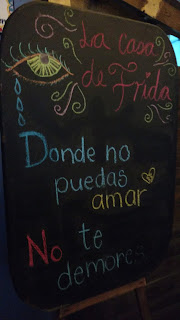 La casa
de Frida
Donde no
puedas
amar
No te
demores